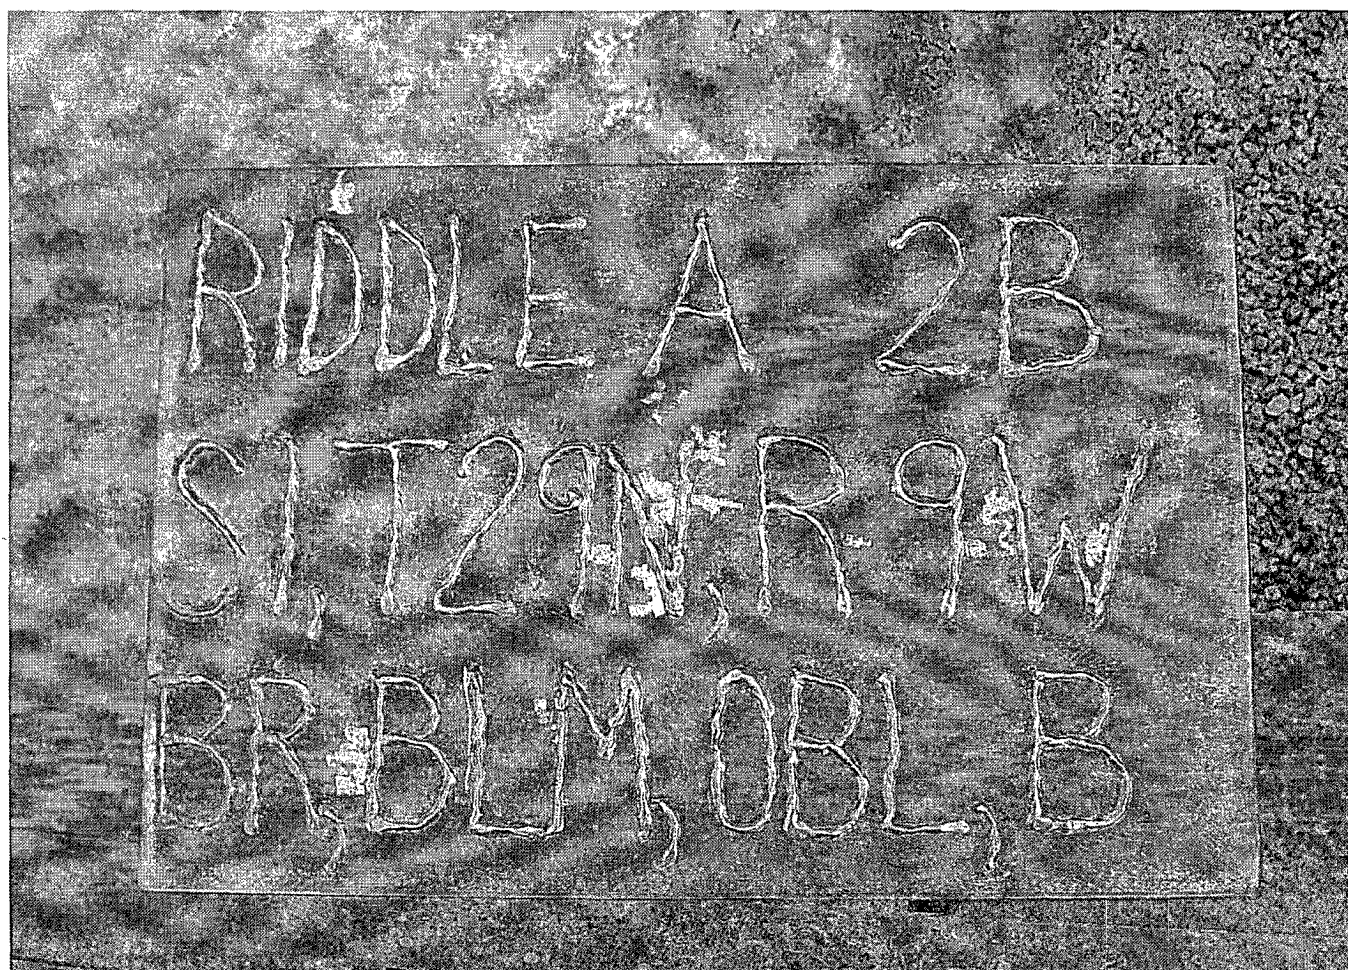 RIDDLE A 2B
S1,T29N,R9W
BR,BLM,OBL,B